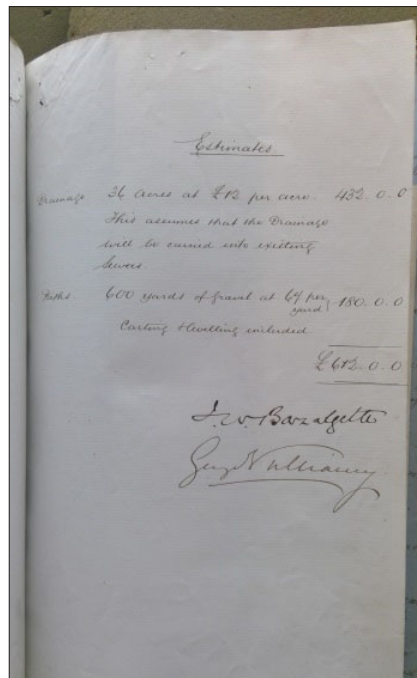 Estimates
Drainage 36 acres at £12 per acre. 432. 0. 0
This assumes that the Drainage
will be carried into existing
Sewers.
Paths 600 yards of gravel at 6/ per yard 180. 0. 0
Carting & levelling included
£ 612. 0. 0
J. W. Bazalgette
Vulliamy